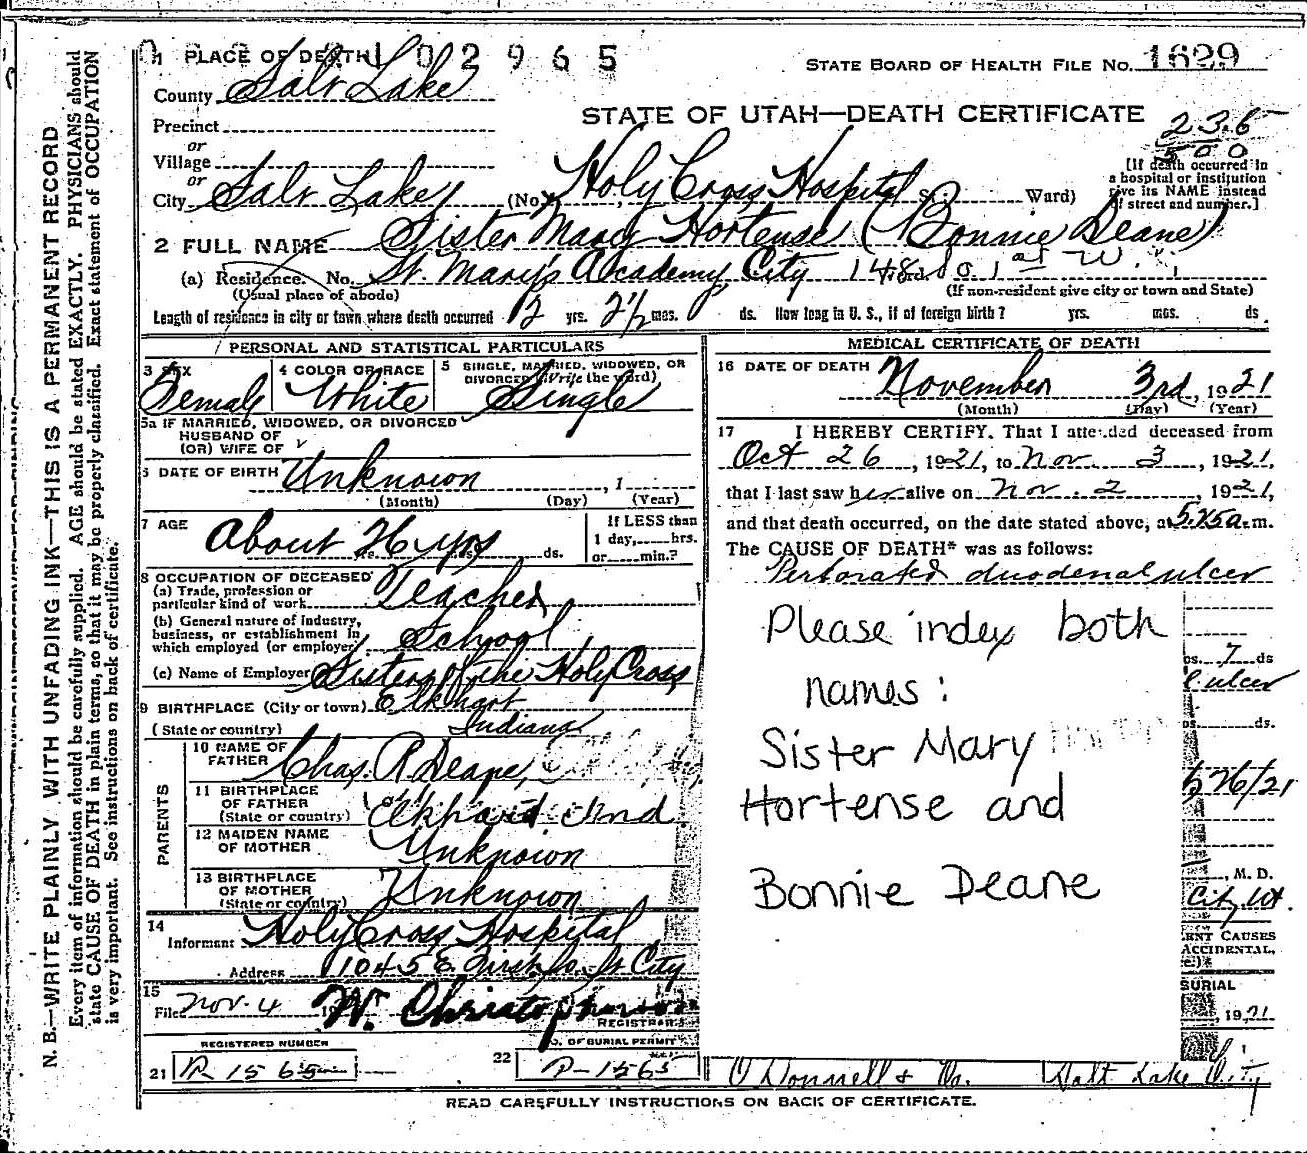 1 PLACE OF DEATH 02965
STATE BOARD OF HEALTH FILE No. 1629
County Salt Lake
STATE OF UTAH—DEATH CERTIFICATE
236
500
Precinct
or
Village
or
City Salt Lake (No. Holy Cross Hospital St. Ward)
[If death occurred in
a hospital or institution
give its NAME instead
of street and number.]
2 FULL NAME Sister Mary Hortense (Bonnie Deane)
(a) Residence. No. St. Mary's Academy City
(Usual place of abode) (If non-resident give city or town and State)
Length of residence in city or town where death occurred 12 yrs. 2½ mos. ds. How long in U. S., if of foreign birth? yrs. mos. ds
PERSONAL AND STATISTICAL PARTICULARS
3 SEX 4 COLOR OR RACE 5 SINGLE, MARRIED, WIDOWED, OR
DIVORCED (Write the word)
Female White Single
5a IF MARRIED, WIDOWED, OR DIVORCED
HUSBAND OF
(OR) WIFE OF
6 DATE OF BIRTH Unknown , 1
(Month) (Day) (Year)
7 AGE About 26 yrs ds.
If LESS than
1 day, hrs.
or min.?
8 OCCUPATION OF DECEASED
(a) Trade, profession or
particular kind of work Teacher
(b) General nature of industry,
business, or establishment in
which employed (or employer) School
(c) Name of Employer Sisters of the Holy Cross
9 BIRTHPLACE (City or town) Elkhart
(State or country) Indiana
PARENTS
10 NAME OF
FATHER Chas. R Deane
11 BIRTHPLACE
OF FATHER
(State or country) Elkhart Ind
12 MAIDEN NAME
OF MOTHER Unknown
13 BIRTHPLACE
OF MOTHER
(State or country) Unknown
14
Informant Holy Cross Hospital
Address 1045 E. First So. St City
15
Filed Nov. 4 W. Christopherson
REGISTRAR
REGISTERED NUMBER
21 R 1565
22 NO. OF BURIAL PERMIT
P-1565
MEDICAL CERTIFICATE OF DEATH
16 DATE OF DEATH November 3rd, 1921
(Month) (Day) (Year)
17 I HEREBY CERTIFY, That I attended deceased from
Oct 26, 1921, to Nov. 3, 1921,
that I last saw her alive on Nov. 2, 1921,
and that death occurred, on the date stated above, at 5.45 a. m.
The CAUSE OF DEATH* was as follows:
Perforated duodenal ulcer
Please index both
names:
Sister Mary
Hortense and
Bonnie Deane
7 ds
ulcer
ds.
26/21
, M. D.
City Ut.
ENT CAUSES
ACCIDENTAL,
BURIAL
, 1921
O Donnell & Co. Salt Lake City
READ CAREFULLY INSTRUCTIONS ON BACK OF CERTIFICATE.
N. B.—WRITE PLAINLY WITH UNFADING INK—THIS IS A PERMANENT RECORD
Every item of information should be carefully supplied. AGE should be stated EXACTLY. PHYSICIANS should
state CAUSE OF DEATH in plain terms, so that it may be properly classified. Exact statement of OCCUPATION
is very important. See instructions on back of certificate.